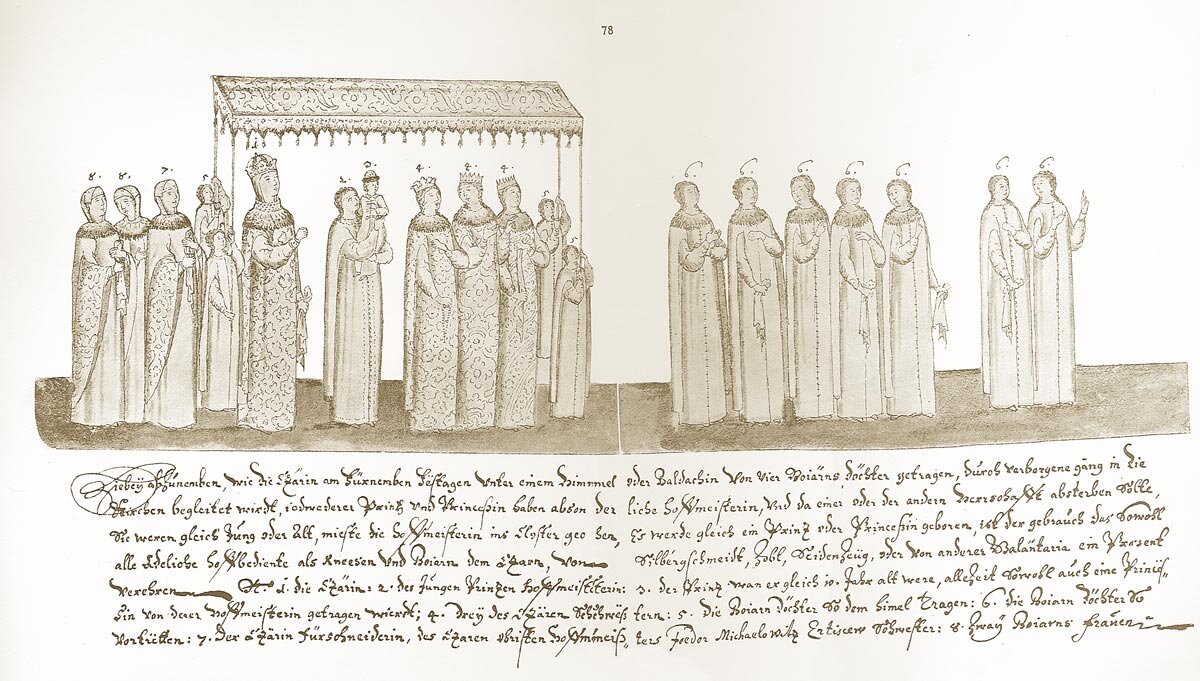 78
8. 8. 7. 5. 1. 2. 3. 4. 4. 4. 5. 5. 6. 6. 6. 6. 6.
Hiebey zu, wie die Czärin am fürnemben festagen unter einem himmel oder Baldachin von vier Boiarns döchter getragen, durch verborgene gäng in die
Kirchen begleitet wirdt, iedwederer Printz und Princeßin haben abson der liche hoffmeisterin, Und da einer oder der andern herrschafft absterben solte,
Sie weren gleich Jung oder Alt, mieste die hoffmeisterin ins Closter geo hen, Es werde gleich ein Prinz oder Princeßin geboren, ist der gebrauch das Sowohl
alle Edeliche hoffbediente als Kneesen und Boiarn dem Czarn, von Silbergschmeidt, Zobl, Seidenzeüg, oder von anderer Galantaria ein Present
verehren 1. die Czärin: 2. des Jungen Prinzen hoffmeisterin: 3. der Prinz wan er gleich 10. Jahr alt were, allezeit Sowohl auch eine Princeß-
Sin von derer hoffmeisterin getragen wierdt; 4. Drey des Czären Schweß tern: 5. die Boiarn döchter So dem himel tragen: 6. die Boiarn döchter So
vortretten: 7. Der Czärin fürschneiderin, des Czaren obristen hoffmeis, ters Foedor Michaelowitz Ertiscew Schwester: 8. Zway Boiarns frauen